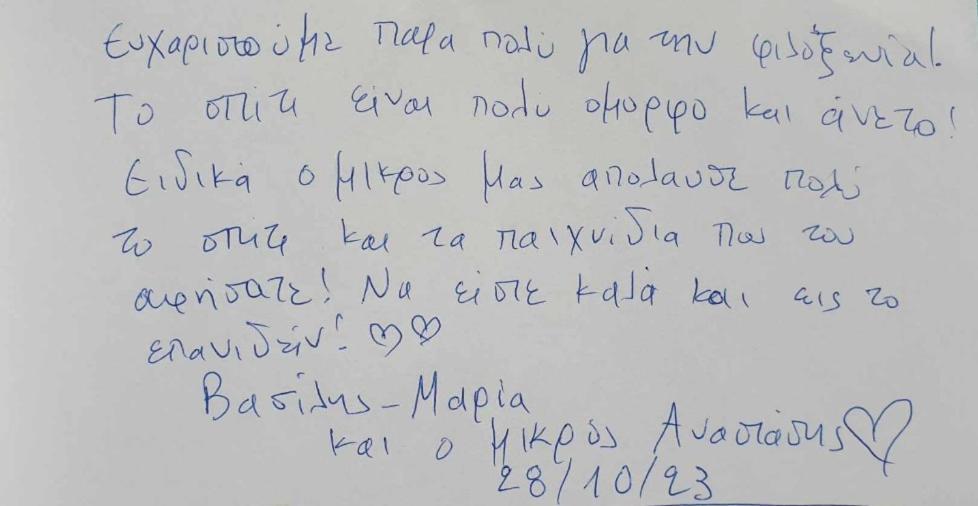 Ευχαριστούμε παρα πολύ για την φιλοξενία!
Το σπίτι είναι πολύ όμορφο και άνετο!
Ειδικά ο μικρός μας απόλαυσε πολύ
το σπίτι και τα παιχνίδια που του
αφήσατε! Να είστε καλά και εις το
επανιδείν! ♡♡
Βασίλης - Μαρία
και ο μικρός Αναστάσης ♡
28/10/23